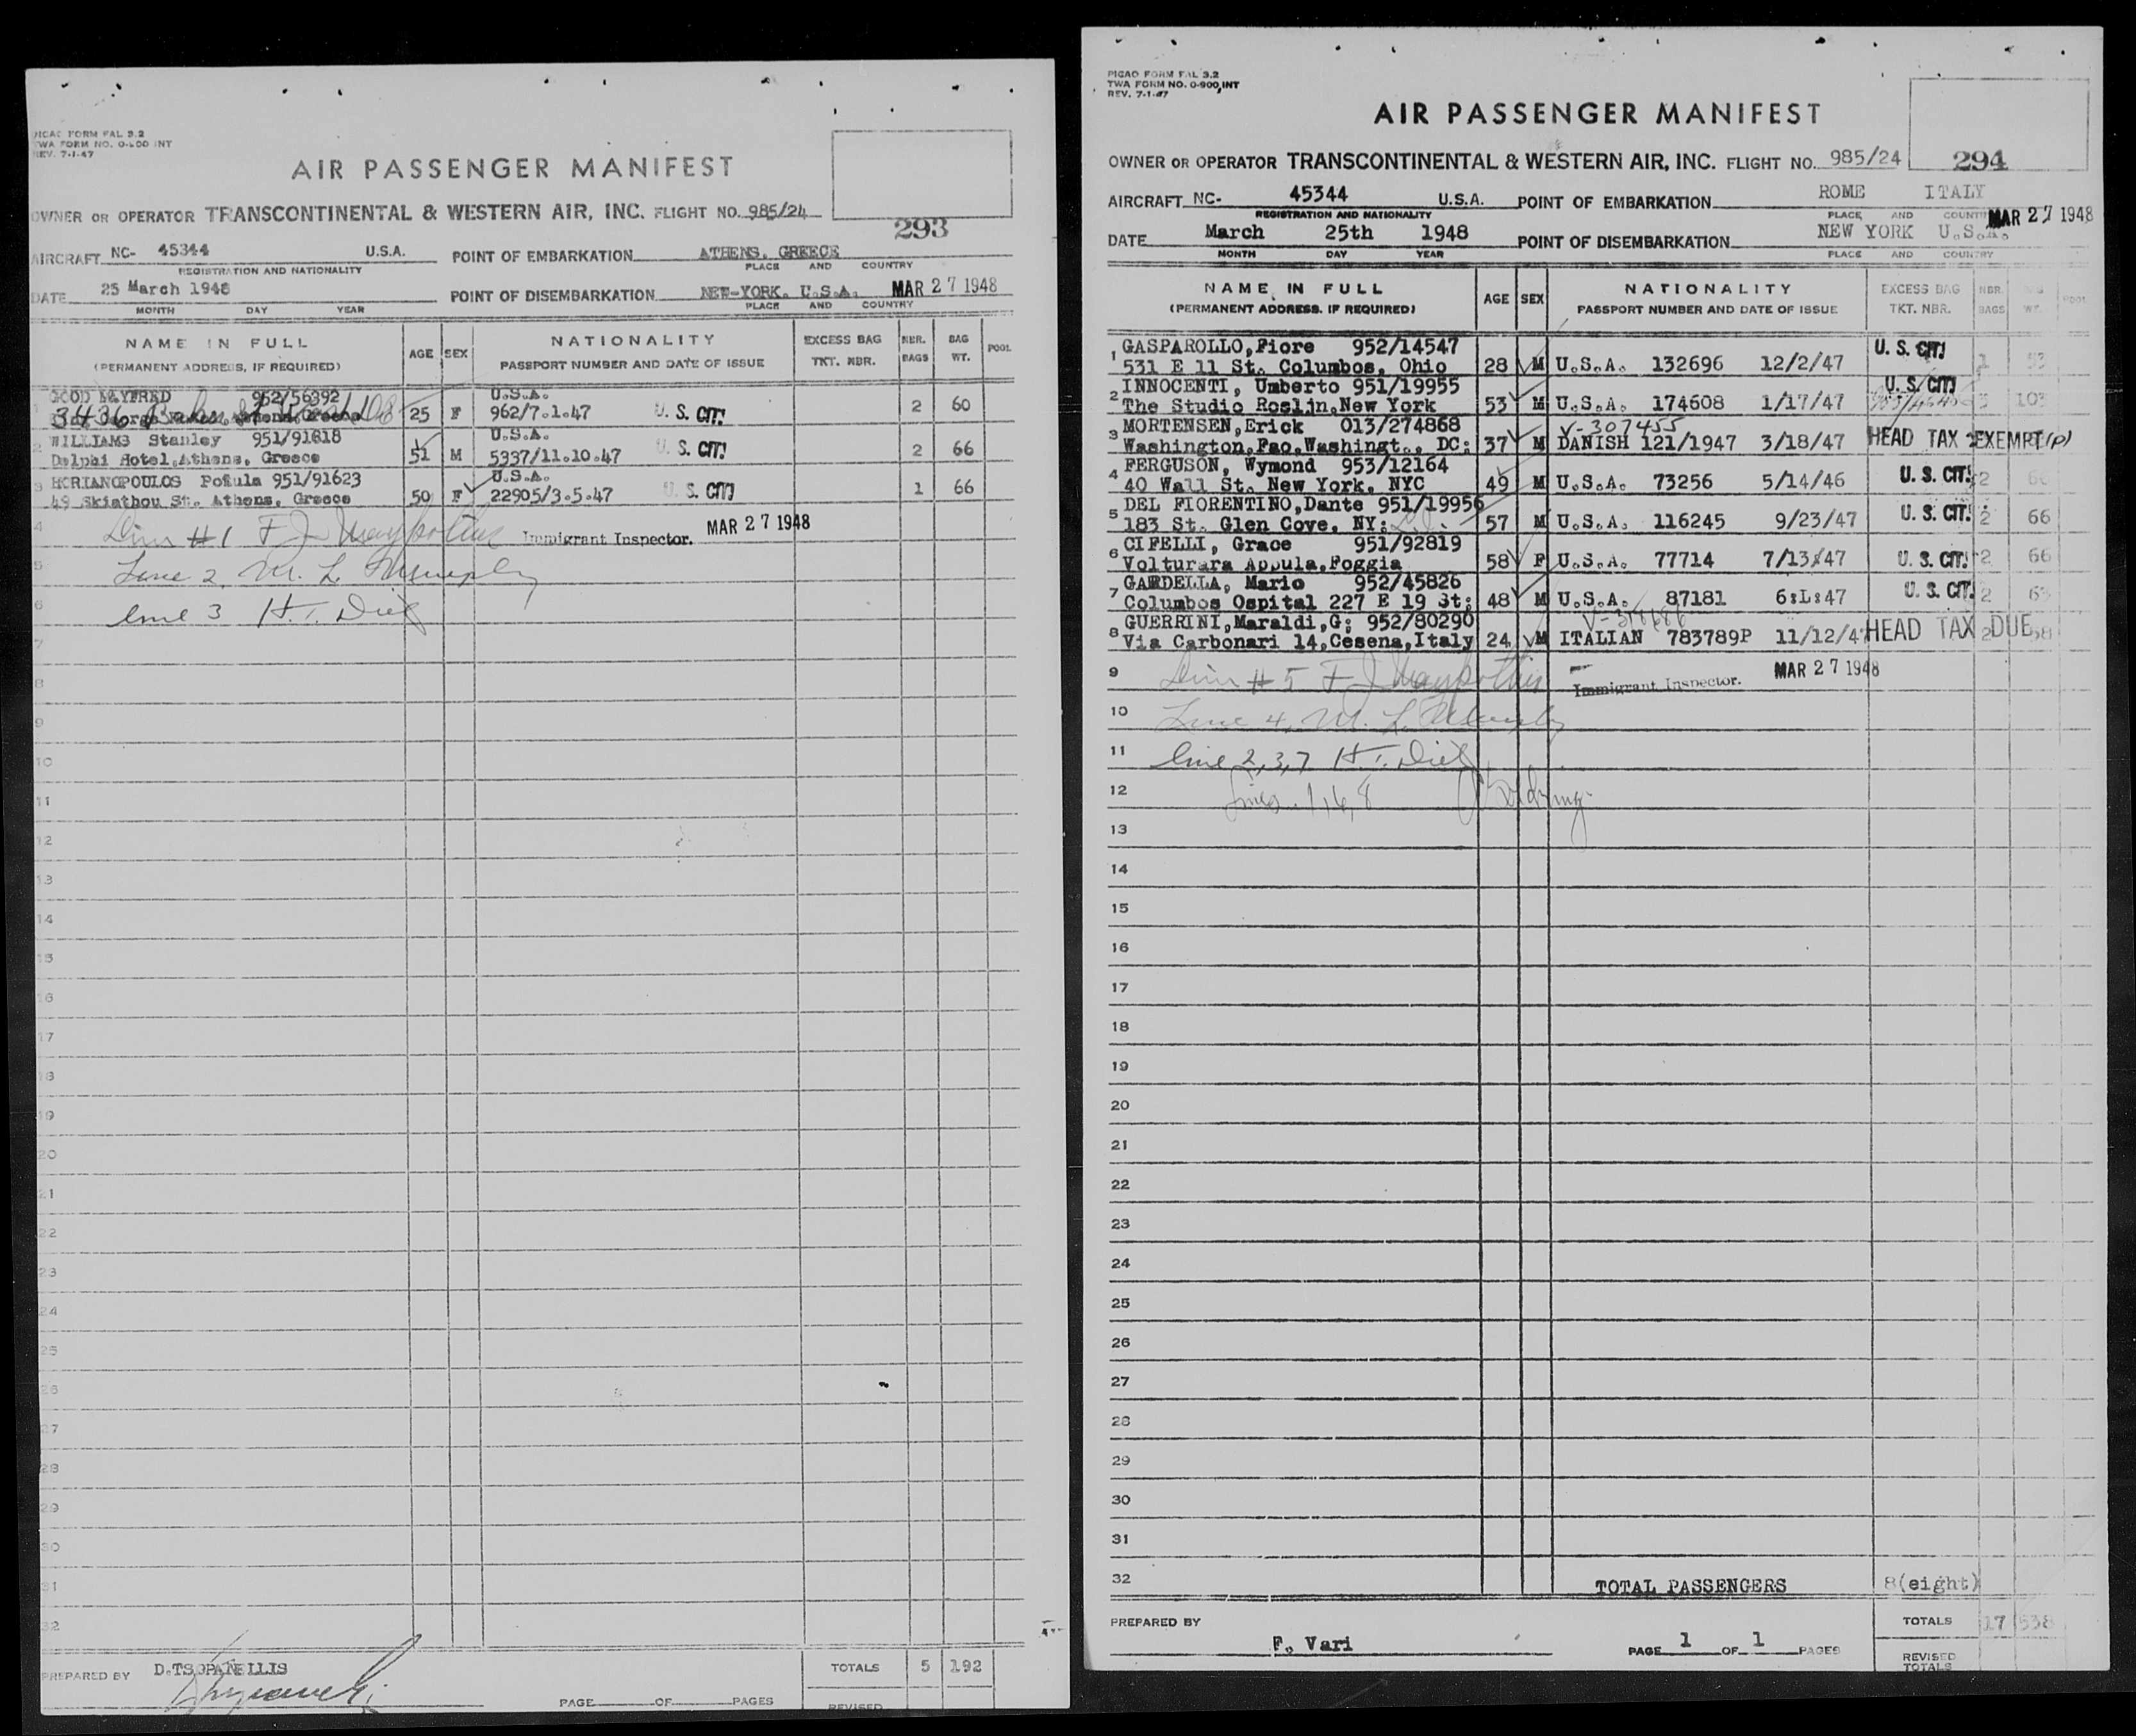 PICAO FORM FAL 3.2
TWA FORM NO. 0-900 INT
REV. 7-1-47
AIR PASSENGER MANIFEST
OWNER OR OPERATOR TRANSCONTINENTAL & WESTERN AIR, INC. FLIGHT NO. 985/24
293
AIRCRAFT NC- 45344 U.S.A. POINT OF EMBARKATION ATHENS, GREECE
REGISTRATION AND NATIONALITY PLACE AND COUNTRY
DATE 25 March 1948 POINT OF DISEMBARKATION NEW-YORK. U.S.A. MAR 27 1948
MONTH DAY YEAR PLACE AND COUNTRY
NAME IN FULL AGE SEX NATIONALITY EXCESS BAG NBR. BAG POOL
(PERMANENT ADDRESS, IF REQUIRED) PASSPORT NUMBER AND DATE OF ISSUE TKT. NBR. BAGS WT.
GOOD MAYFRED 952/56392 U.S.A.
3436 25 F 962/7.1.47 U. S. CIT. 2 60
2 WILLIAMS Stanley 951/91818 U.S.A.
Delphi Hotel, Athens, Greece 51 M 5337/11.10.47 U. S. CIT. 2 66
3 HORIANOPOULOS Potula 951/91623 U.S.A.
49 Skiathou St. Athens, Greece 50 F 22905/3.5.47 U. S. CIT. 1 66
4 #1 F J Immigrant Inspector. MAR 27 1948
5 Line 2, M. L. Murphy
6 Line 3 H. T.
7
8
9
10
11
12
13
14
15
16
17
18
19
20
21
22
23
24
25
26
27
28
29
30
31
32
PREPARED BY D.TSOPANELLIS TOTALS 5 192
PAGE OF PAGES REVISED
PICAO FORM FAL 3.2
TWA FORM NO. 0-900 INT
REV. 7-1-47
AIR PASSENGER MANIFEST
OWNER OR OPERATOR TRANSCONTINENTAL & WESTERN AIR, INC. FLIGHT NO. 985/24 294
AIRCRAFT NC- 45344 U.S.A. POINT OF EMBARKATION ROME ITALY
REGISTRATION AND NATIONALITY PLACE AND COUNTRY MAR 27 1948
DATE March 25th 1948 POINT OF DISEMBARKATION NEW YORK U.S.A.
MONTH DAY YEAR PLACE AND COUNTRY
NAME IN FULL AGE SEX NATIONALITY EXCESS BAG NBR. POOL
(PERMANENT ADDRESS, IF REQUIRED) PASSPORT NUMBER AND DATE OF ISSUE TKT. NBR. BAGS WT.
1 GASPAROLLO, Fiore 952/14547 U. S. CIT.
531 E 11 St. Columbos, Ohio 28 M U.S.A. 132696 12/2/47 1 53
2 INNOCENTI, Umberto 951/19955 U. S. CIT.
The Studio Roslin, New York 53 M U.S.A. 174608 1/17/47 3 103
3 MORTENSEN, Erick 013/274868 V-307455
Washington, Fao, Washingt., DC: 37 M DANISH 121/1947 3/18/47 HEAD TAX EXEMPT (P)
4 FERGUSON, Wymond 953/12164
40 Wall St. New York, NYC 49 M U.S.A. 73256 5/14/46 U. S. CIT. 2 66
5 DEL FIORENTINO, Dante 951/19956
183 St. Glen Cove, NY: L.I. 57 M U.S.A. 116245 9/23/47 U. S. CIT. 2 66
6 CIFELLI, Grace 951/92819
Volturara Appula, Foggia 58 F U.S.A. 77714 7/13/47 U. S. CIT. 2 66
7 GARDELLA, Mario 952/45826
Columbos Ospital 227 E 19 St: 48 M U.S.A. 87181 6:L:47 U. S. CIT. 2
8 GUERRINI, Maraldi, G; 952/80290
Via Carbonari 14, Cesena, Italy 24 M ITALIAN 783789P 11/12/4 HEAD TAX DUE 2 58
9 # 5 F J Immigrant Inspector. MAR 27 1948
10 Line 4, M. L. Murphy
11 Line 2, 3, 7 H. T.
12 Lines 1, 6, 8
13
14
15
16
17
18
19
20
21
22
23
24
25
26
27
28
29
30
31
32 TOTAL PASSENGERS 8(eight)
PREPARED BY TOTALS 17 538
F. Vari PAGE 1 OF 1 PAGES
REVISED
TOTALS